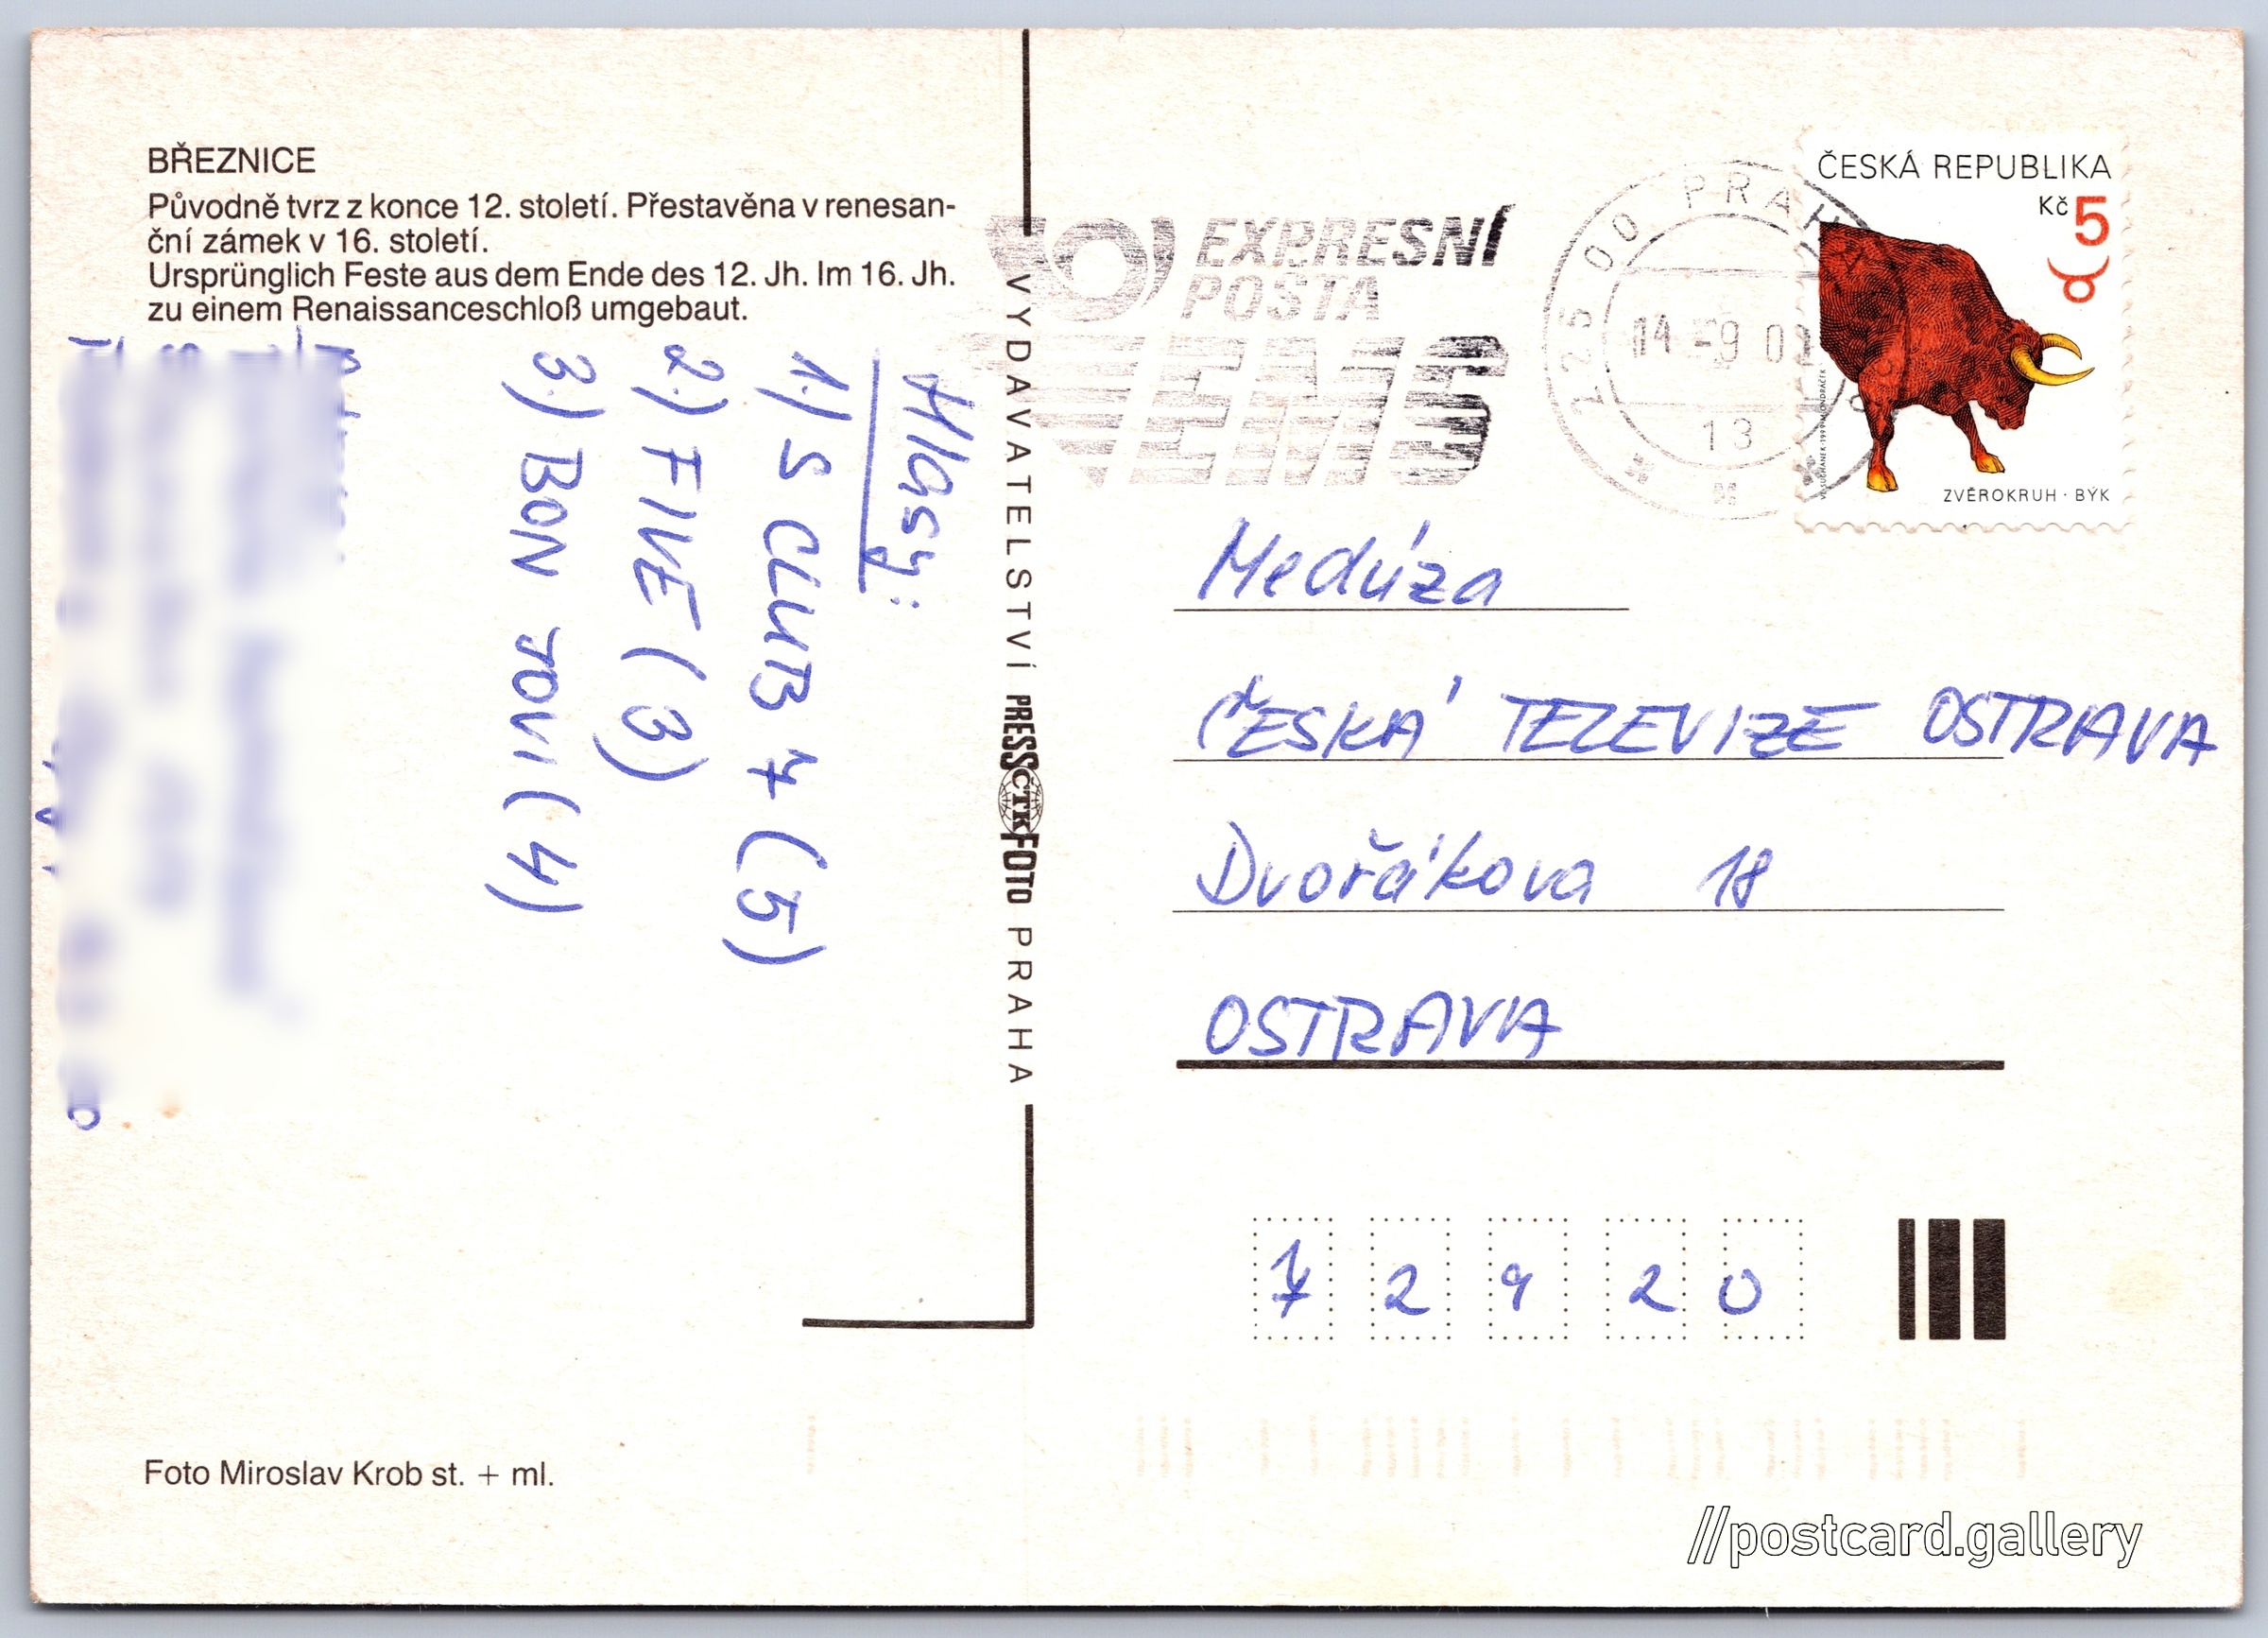 BŘEZNICE
Původně tvrz z konce 12. století. Přestavěna v renesan-
ční zámek v 16. století.
Ursprünglich Feste aus dem Ende des 12. Jh. Im 16. Jh.
zu einem Renaissanceschloß umgebaut.
Hlasy:
1.) S CLUB 7 (5)
2.) FIVE (3)
3.) BON JOVI (4)
Foto Miroslav Krob st. + ml.
VYDAVATELSTVÍ PRESSČTKFOTO PRAHA
EXPRESNÍ
POŠTA
EMS
225 00 PRAHA
14 -9 0
13
ČESKÁ REPUBLIKA
Kč 5
ZVĚROKRUH · BÝK
Medúza
ČESKÁ TELEVIZE OSTRAVA
Dvořákova 18
OSTRAVA
7 2 9 2 0
//postcard.gallery